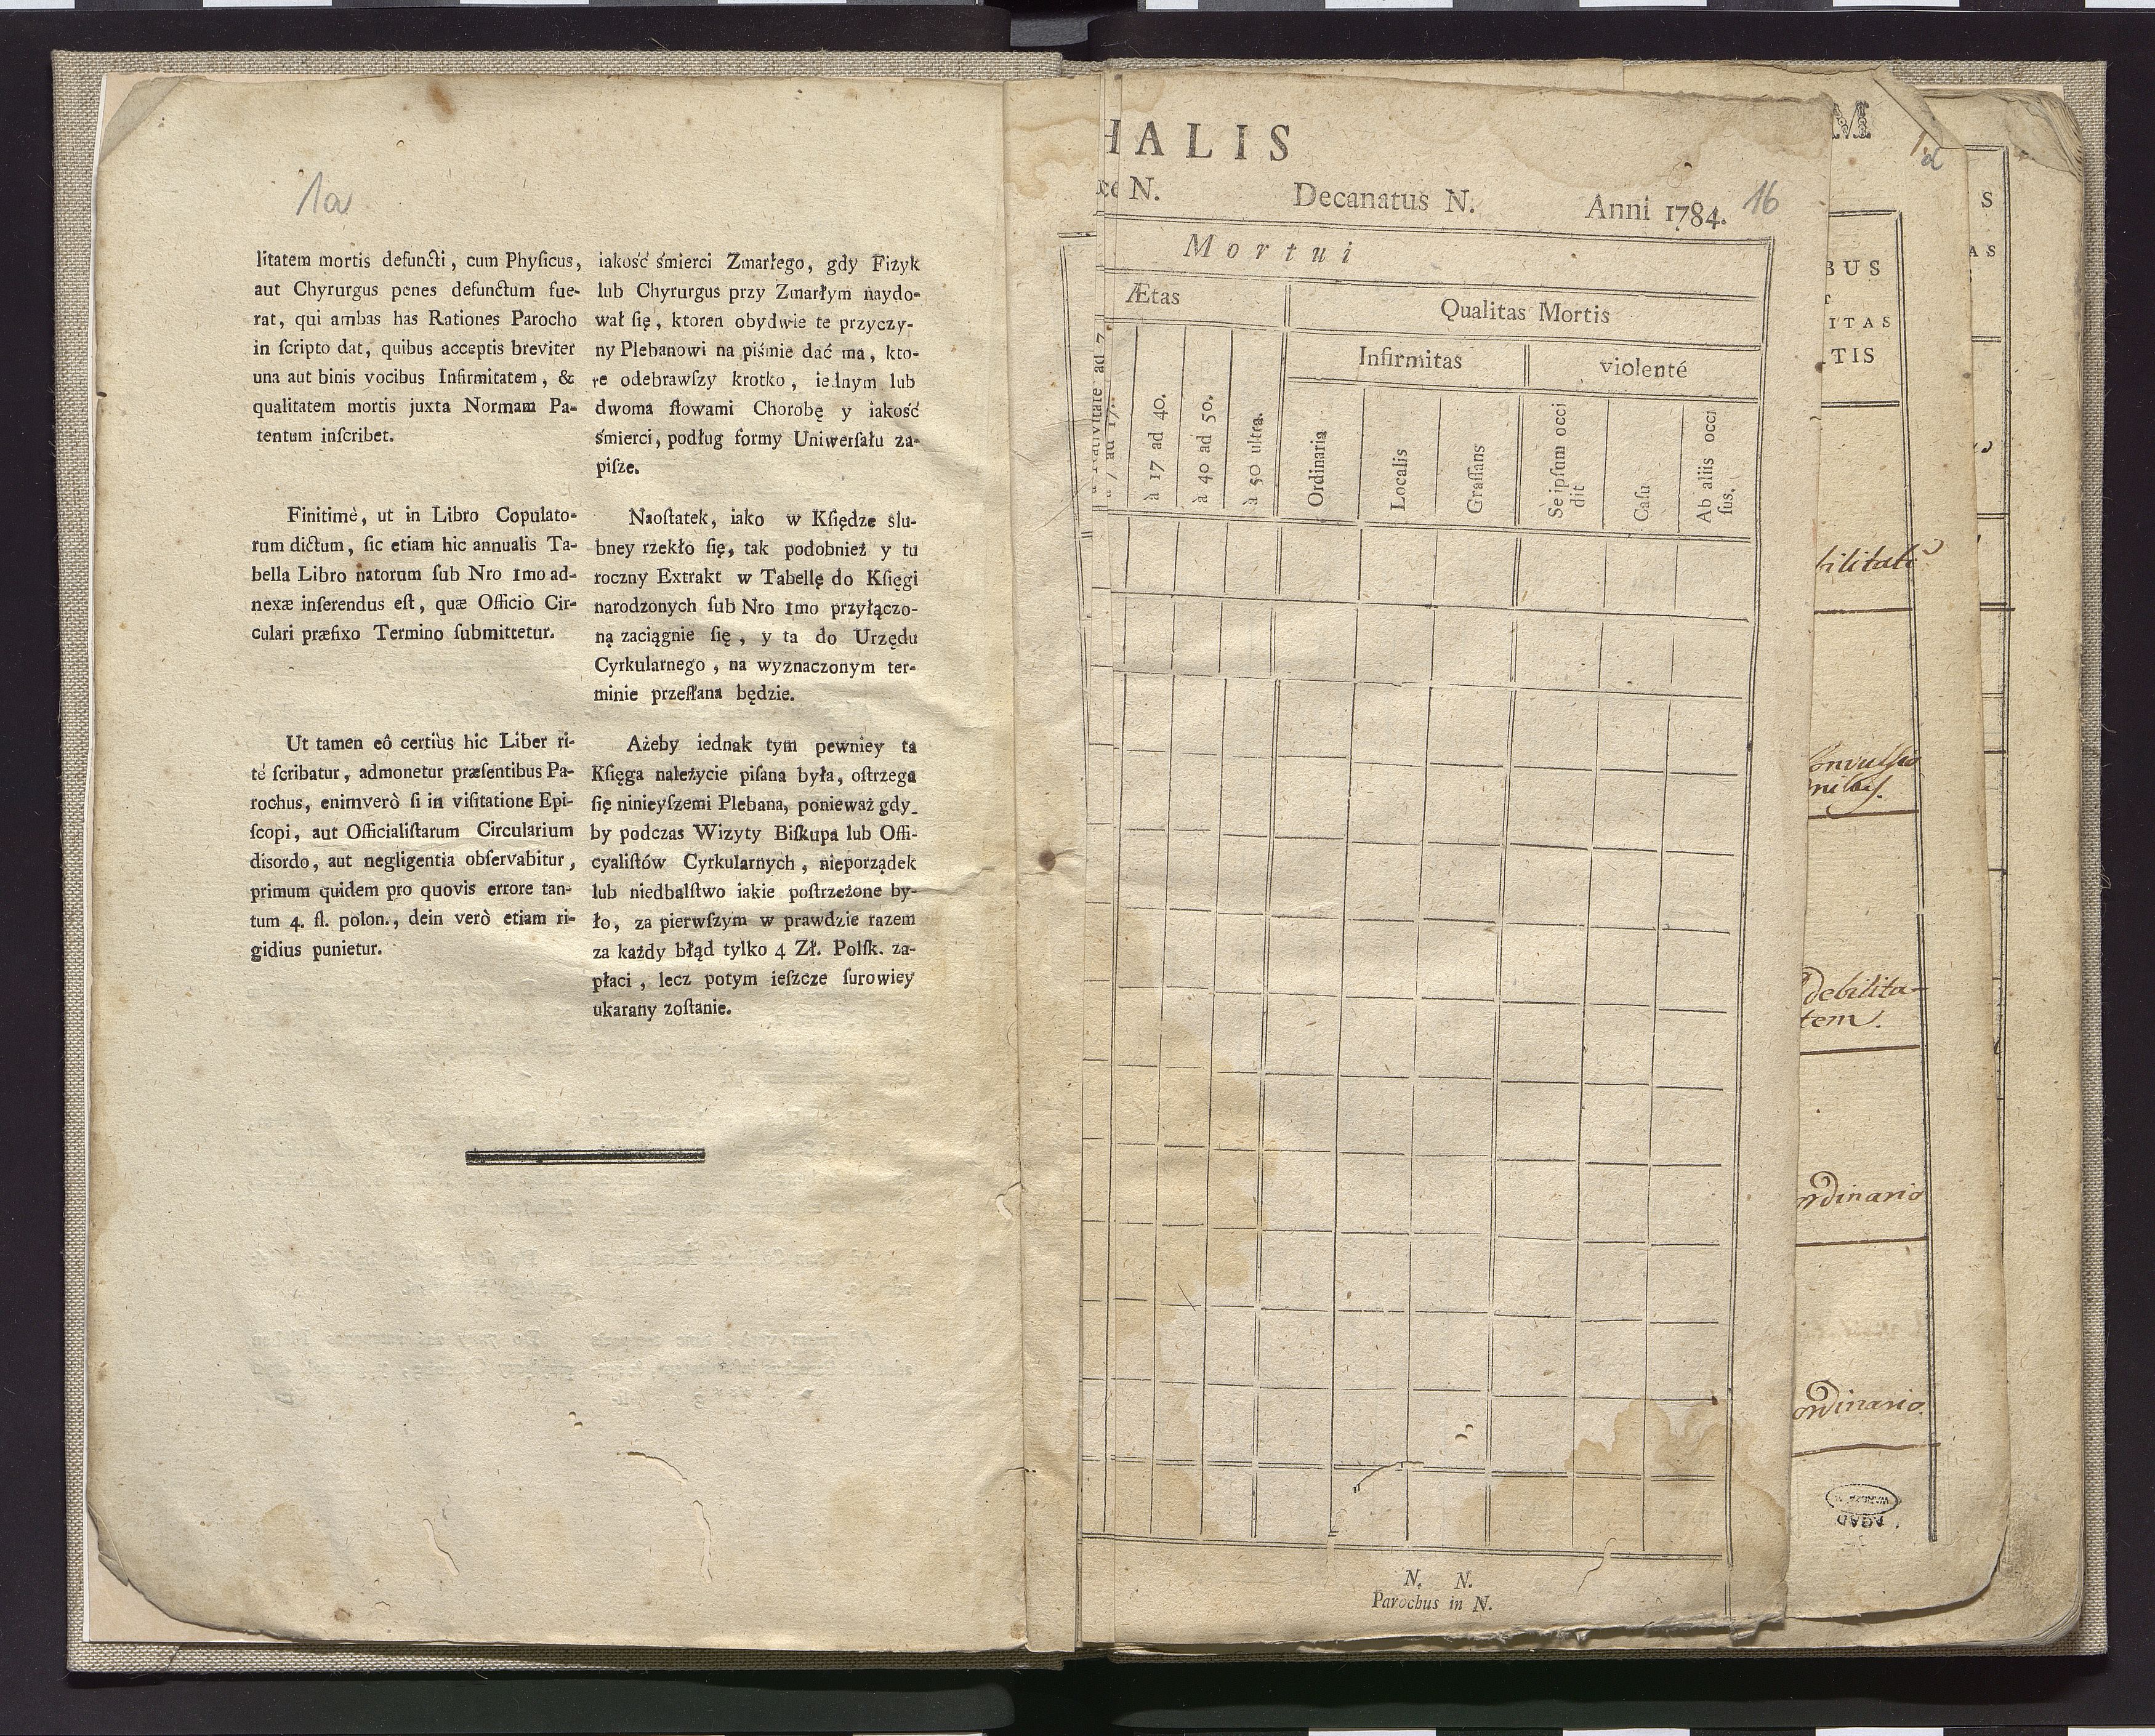 1a
litatem mortis defuncti, cum Phyſicus,
aut Chyrurgus penes defunctum fue-
rat, qui ambas has Rationes Parocho
in ſcripto dat, quibus acceptis breviter
una aut binis vocibus Infirmitatem, &
qualitatem mortis juxta Normam Pa-
tentum inſcribet.
Finitimè, ut in Libro Copulato-
rum dictum, ſic etiam hic annualis Ta-
bella Libro natorum ſub Nro 1mo ad-
nexæ inſerendus eſt, quæ Officio Cir-
culari præfixo Termino ſubmittetur.
Ut tamen eô certiùs hic Liber ri-
té ſcribatur, admonetur præſentibus Pa-
rochus, enimverò ſi in viſitatione Epi-
ſcopi, aut Officialiſtarum Circularium
disordo, aut negligentia obſervabitur,
primum quidem pro quovis errore tan-
tum 4. fl. polon., dein verò etiam ri-
gidius punietur.
iakość śmierci Zmarłego, gdy Fizyk
lub Chyrurgus przy Zmarłym naydo-
wał ſię, ktoren obydwie te przyczy-
ny Plebanowi na piśmie dać ma, kto-
re odebrawſzy krotko, iednym lub
dwoma ſłowami Chorobę y iakość
śmierci, podług formy Uniwerſału za-
piſze.
Naoſtatek, iako w Kſiędze ślu-
bney rzekło ſię, tak podobnież y tu
roczny Extrakt w Tabellę do Kſięgi
narodzonych ſub Nro 1mo przyłączo-
ną zaciągnie ſię, y ta do Urzędu
Cyrkularnego, na wyznaczonym ter-
minie przeſłana będzie.
Ażeby iednak tym pewniey ta
Kſięga należycie piſana była, oſtrzega
ſię ninieyſzemi Plebana, ponieważ gdy-
by podczas Wizyty Biſkupa lub Offi-
cyaliſtów Cyrkularnych, nieporządek
lub niedbalſtwo iakie poſtrzeżone by-
ło, za pierwſzym w prawdzie razem
za każdy błąd tylko 4 Zł. Polſk. za-
płaci, lecz potym ieſzcze ſurowiey
ukarany zoſtanie.
HALIS
N. Decanatus N. Anni 1784. 16
Mortui
Ætas
Qualitas Mortis
Infirmitas
violenté
à Nativitate ad 7
a 7 ad 17.
à 17 ad 40.
à 40 ad 50.
à 50 ultra.
Ordinaria
Localis
Graſſans
Se ipſum occi
dit
Caſu
Ab aliis occi
ſus.
N. N.
Parochus in N.
M
d
BUS
ITAS
TIS
S
AS
debilita-
tem.
ordinario
ordinario.
AGAD